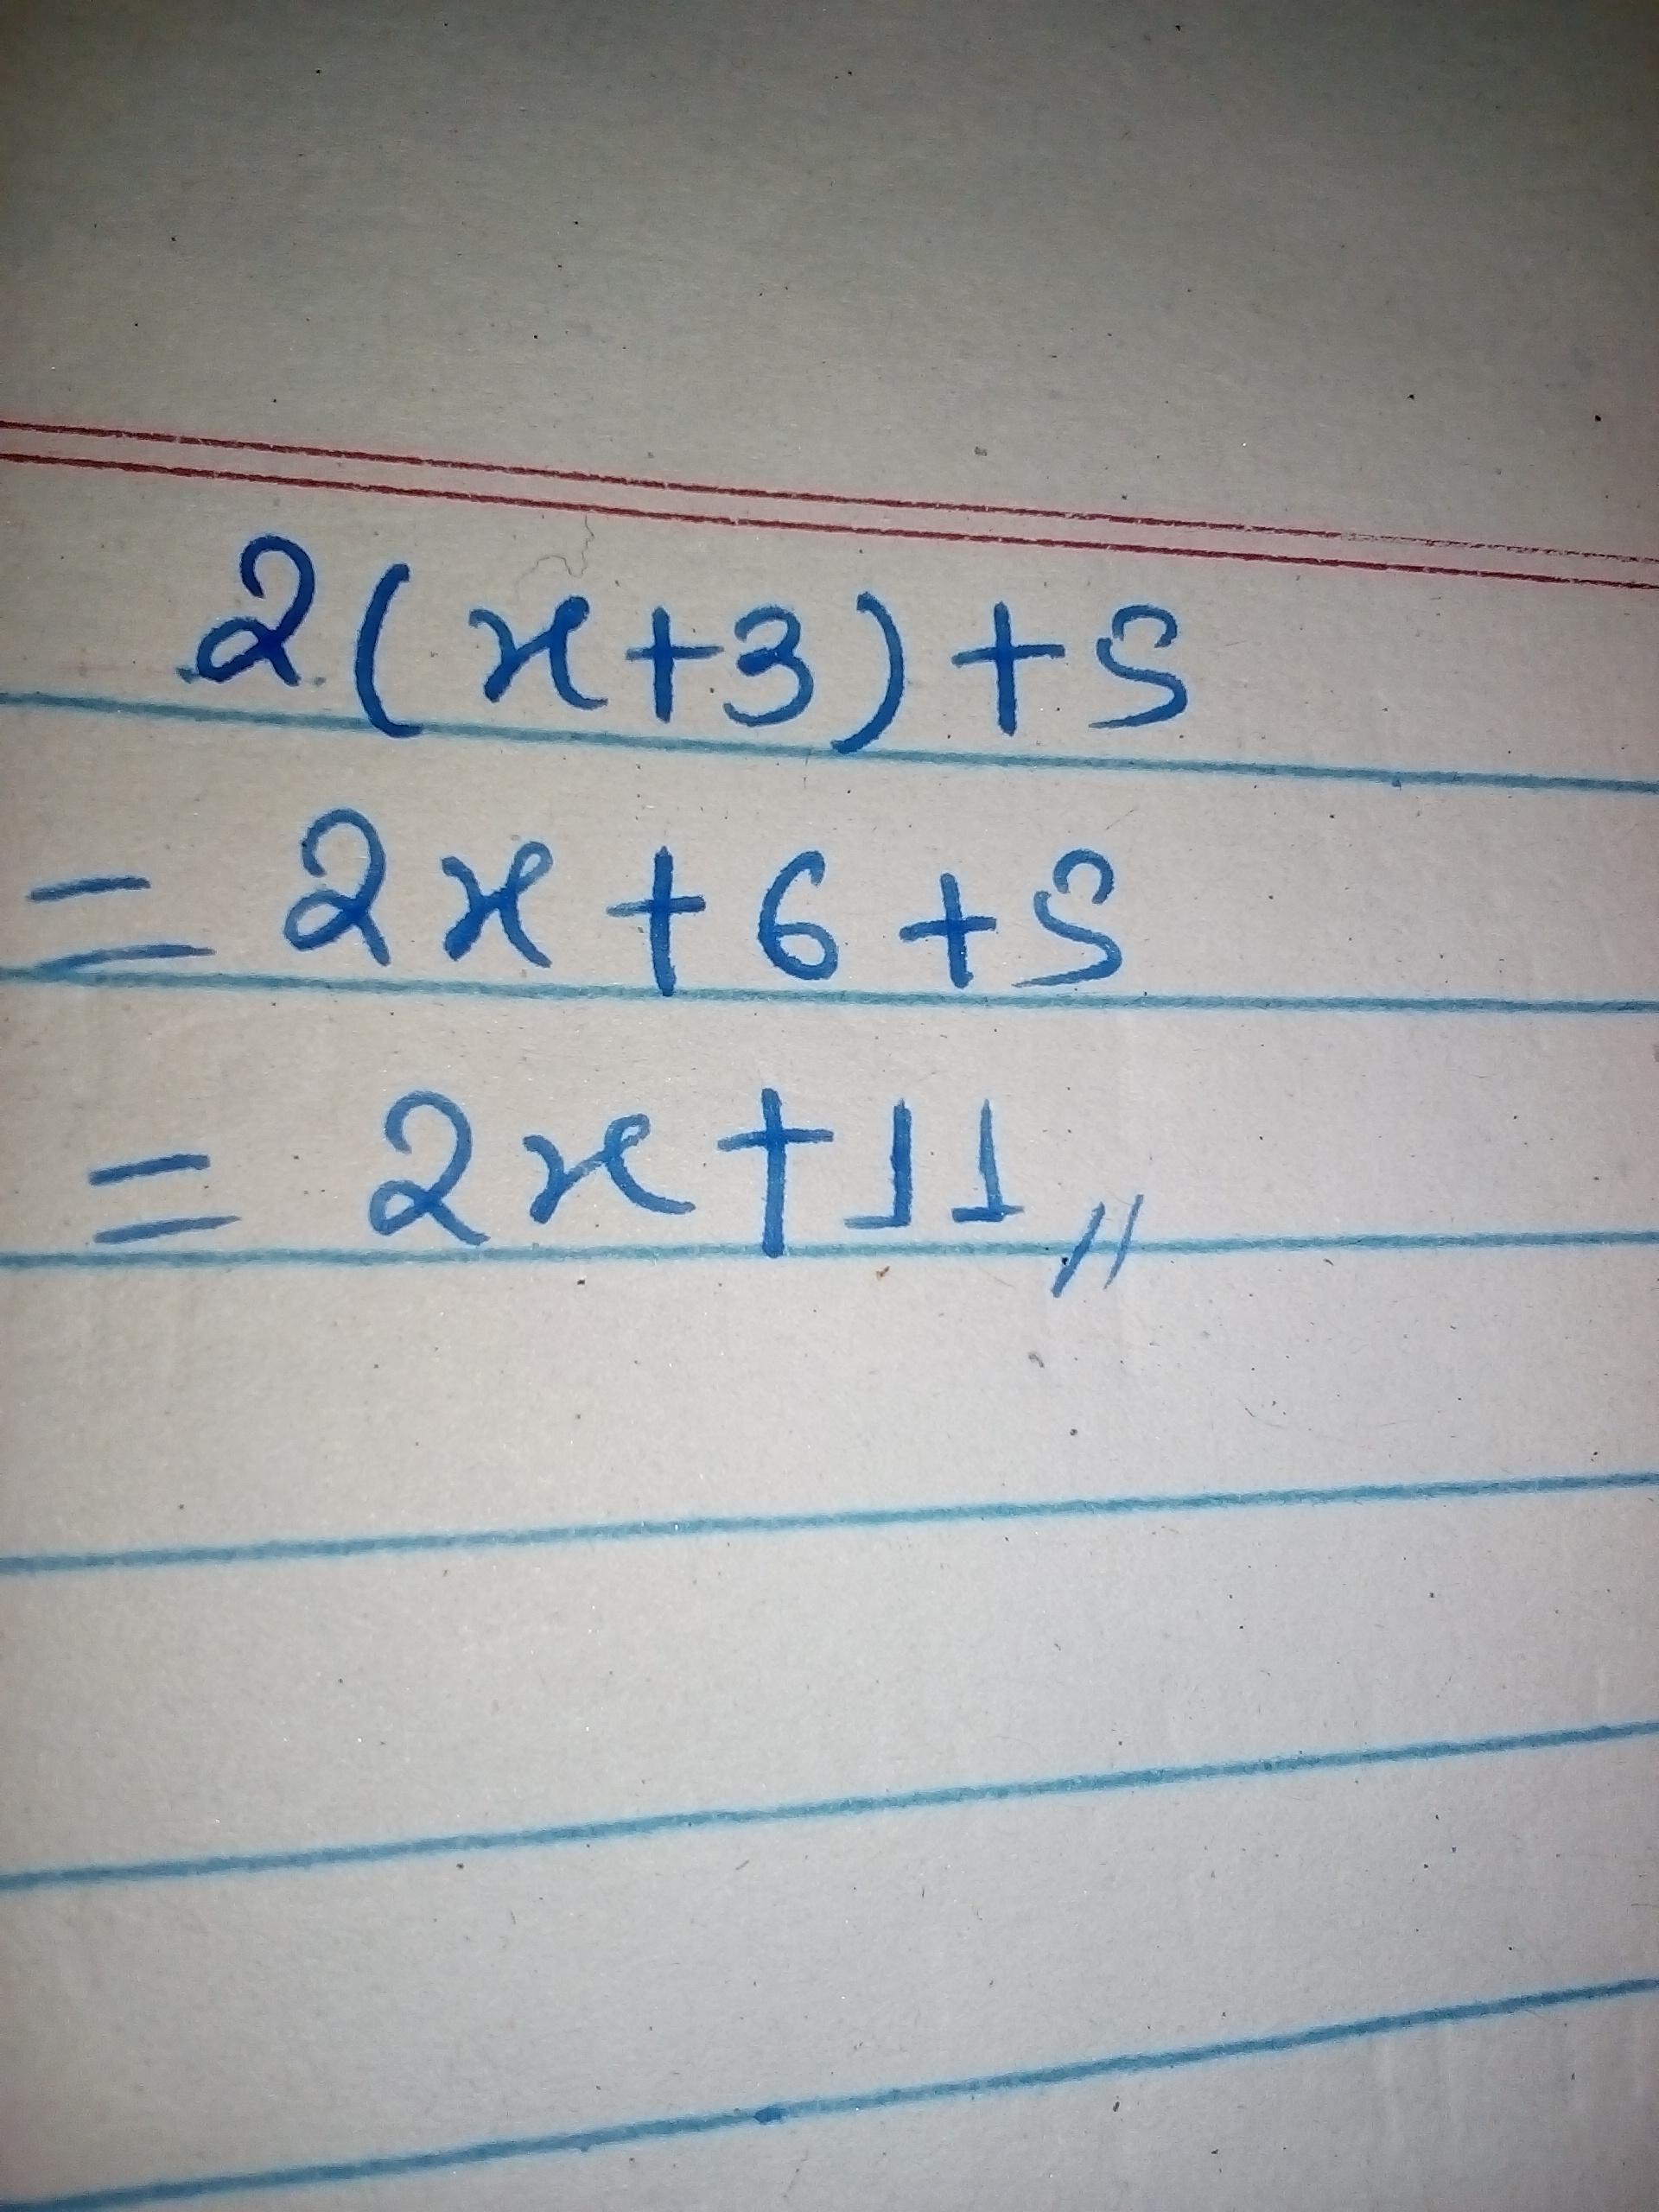 2(x+3)+5
= 2x+6+5
= 2x+11,,